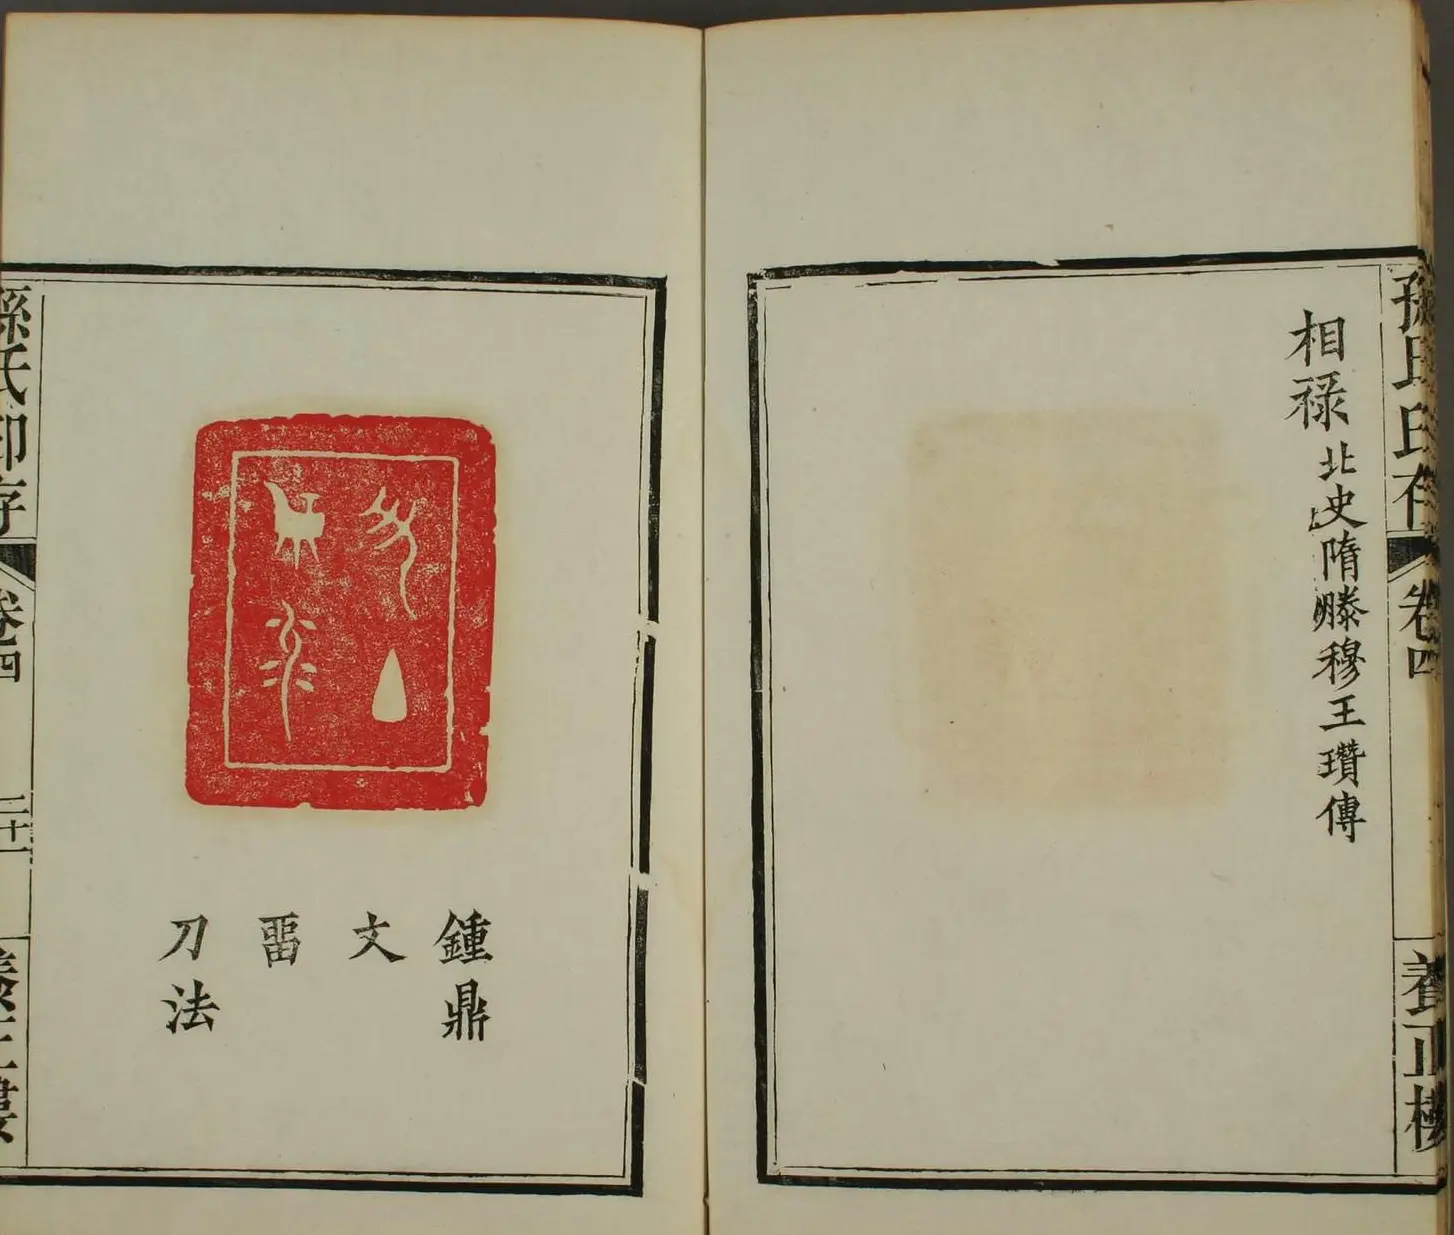 孫氏印存
卷四
養正樓
相祿 北史隋滕穆王瓚傳
鍾鼎
文
刀法
孫氏印存
卷四
二十一
養正樓